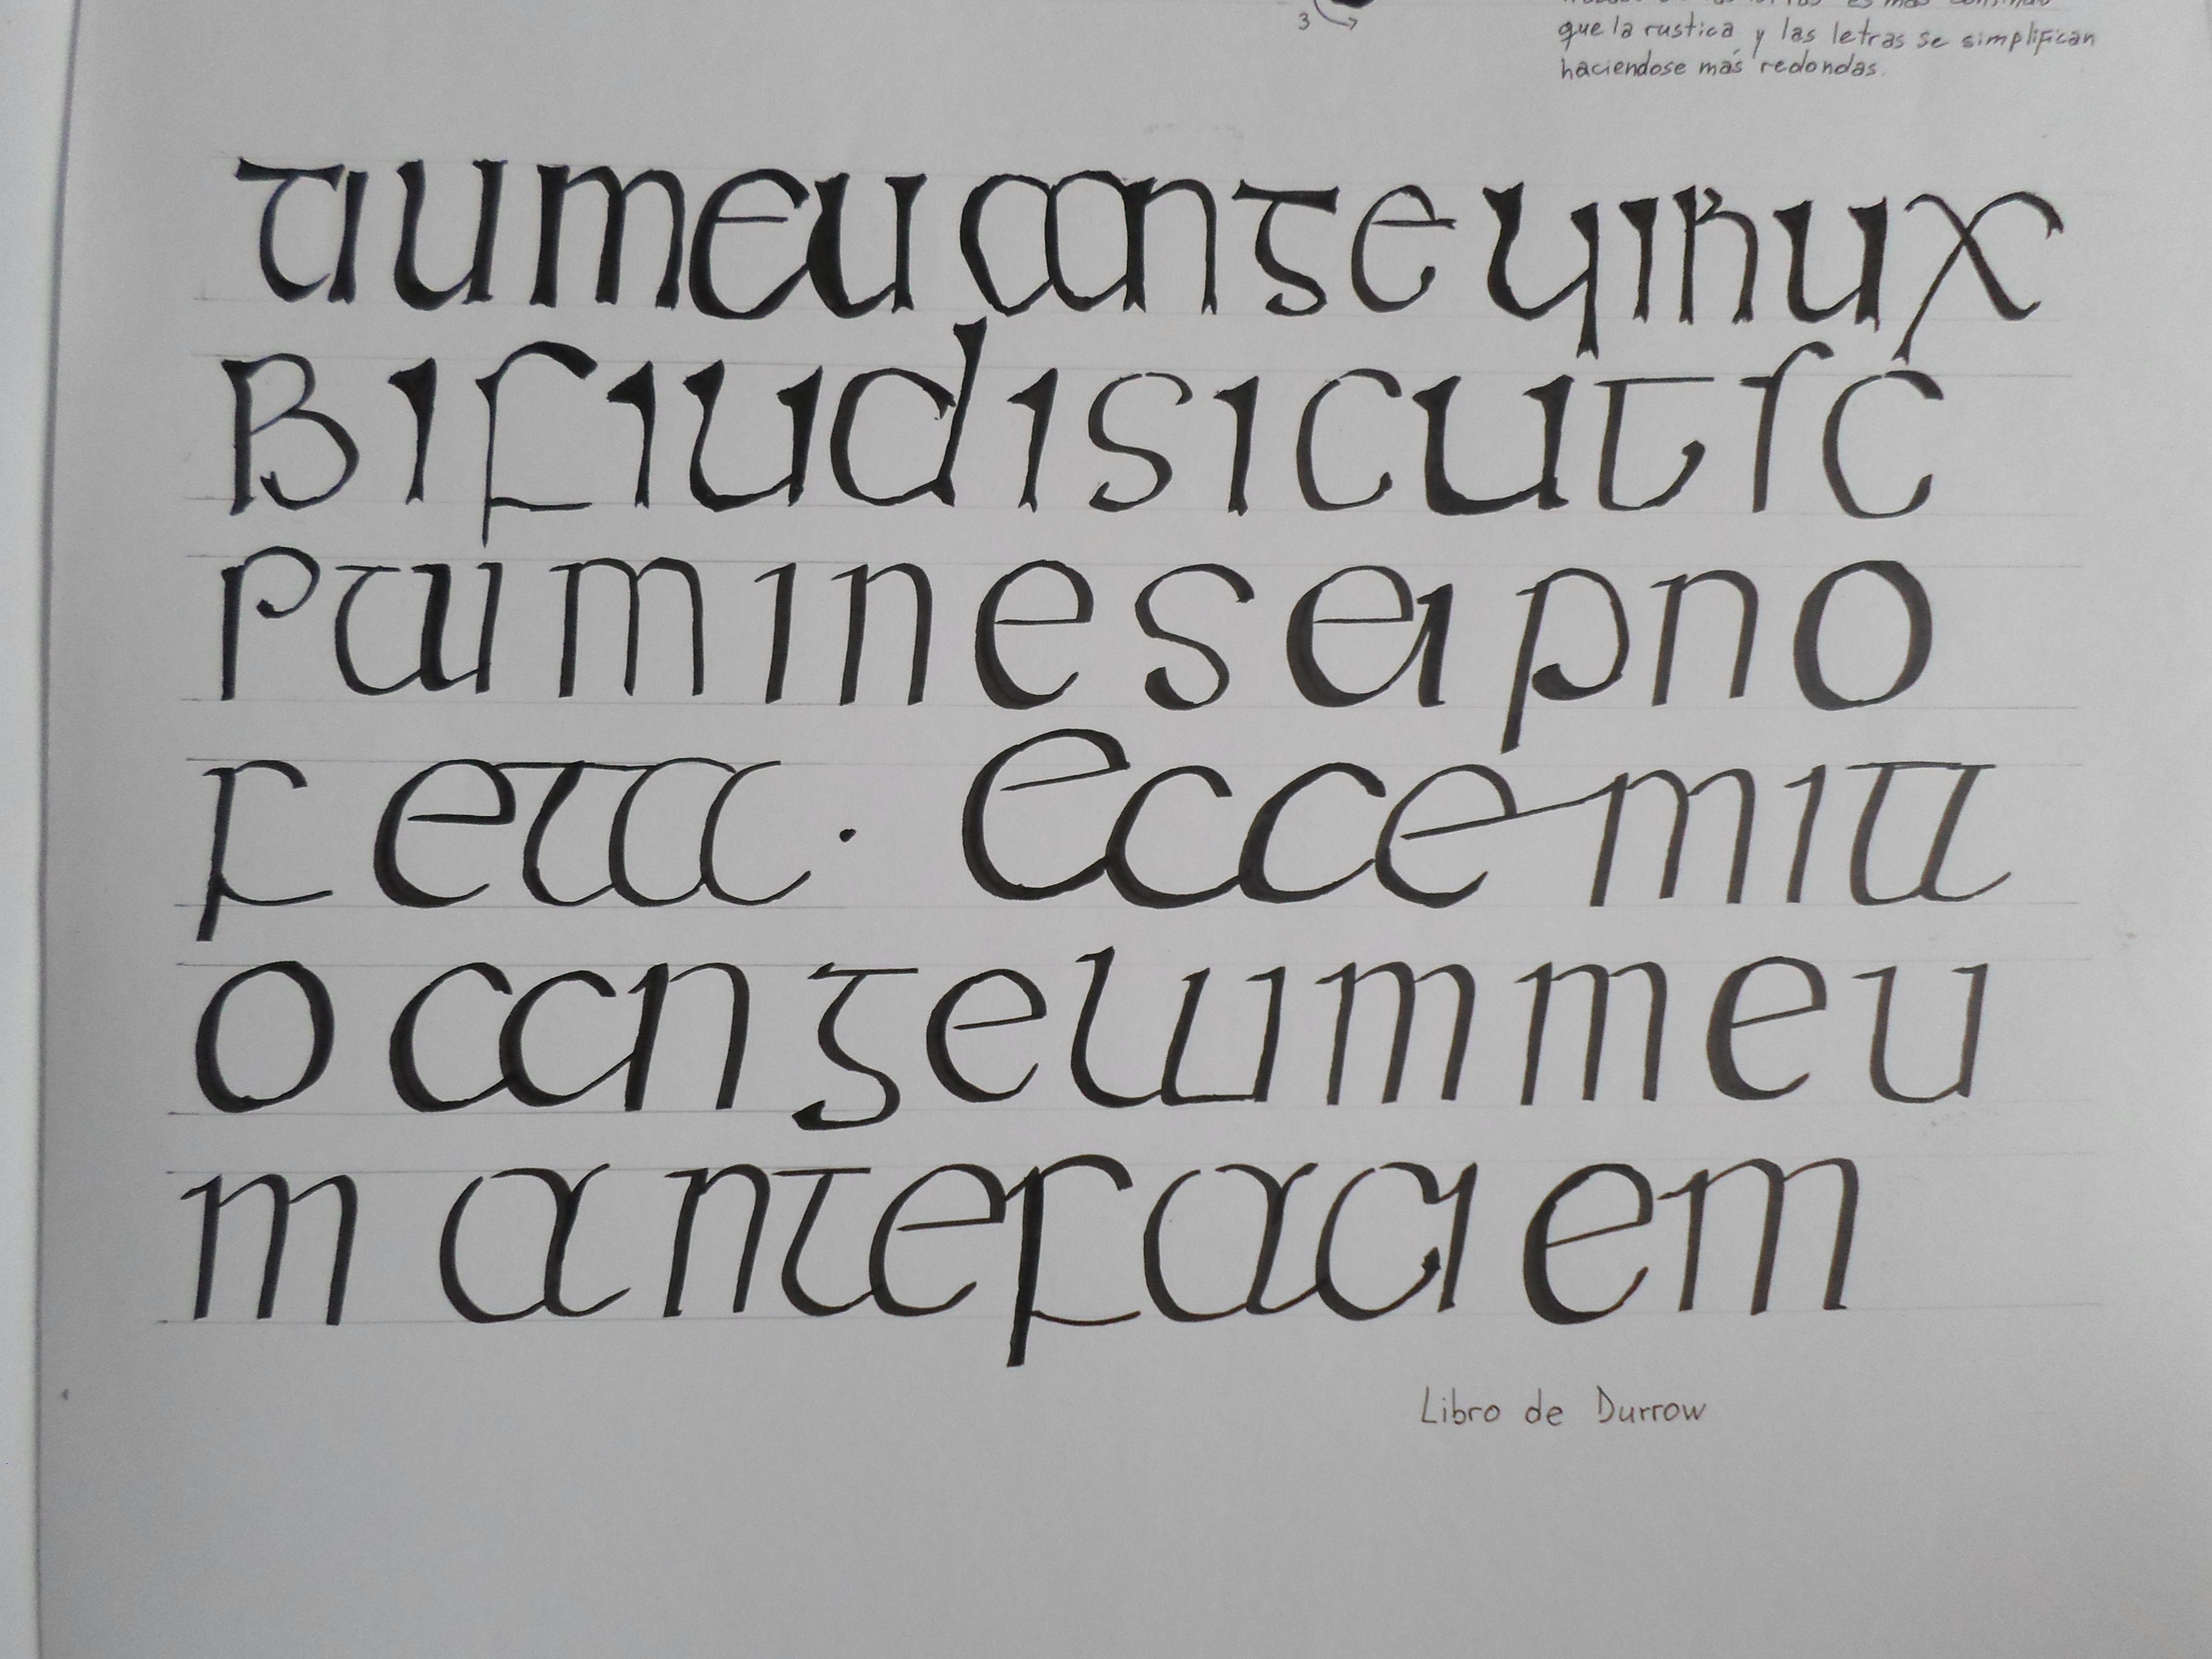 3
que la rustica y las letras se simplifican
haciendose más redondas.
tiumeu ange yihux
Bifiudisicutsc
Ptumineseipno
feta. Ecce mitt
o angelum meu
m antefaciem
Libro de Durrow